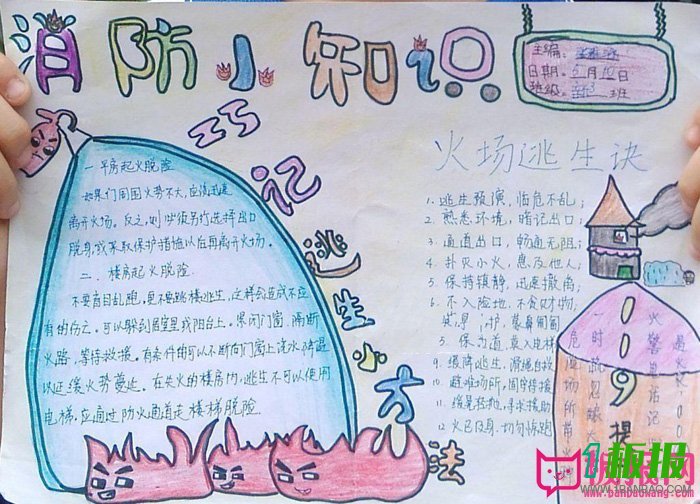 消防小知识
主编:
日期: 5月12日
班级: 班
巧记逃生小方法
一 平房起火脱险
如果门周围火势不大,应该迅速
离开火场。反之,则必须另行选择出口
脱身或采取保护措施以后再离开火场。
二、楼房起火脱险
不要盲目乱跑,更不要跳楼逃生,这样会造成不应
有的伤亡。可以躲到居室里或阳台上。紧闭门窗,隔断
火路,等待救援。有条件的可以不断向门窗上浇水降温
以延缓火势蔓延。在失火的楼房内,逃生不可以使用
电梯,应通过防火通道走楼梯脱险
火场逃生诀
1. 逃生预演,临危不乱;
2. 熟悉环境,暗记出口;
3. 通道出口,畅通无阻;
4. 扑灭小火,惠及他人;
5. 保持镇静,迅速撤离;
6. 不入险地,不贪财物;
9. 缓降逃生,滑绳自救
10. 避难场所,固守待援
12 火已及身,切勿惊跑
119提
火警电话记
一时疏忽
危险场所带火
1板报
WWW.1BANBAO.COM
www.banbaowang.com